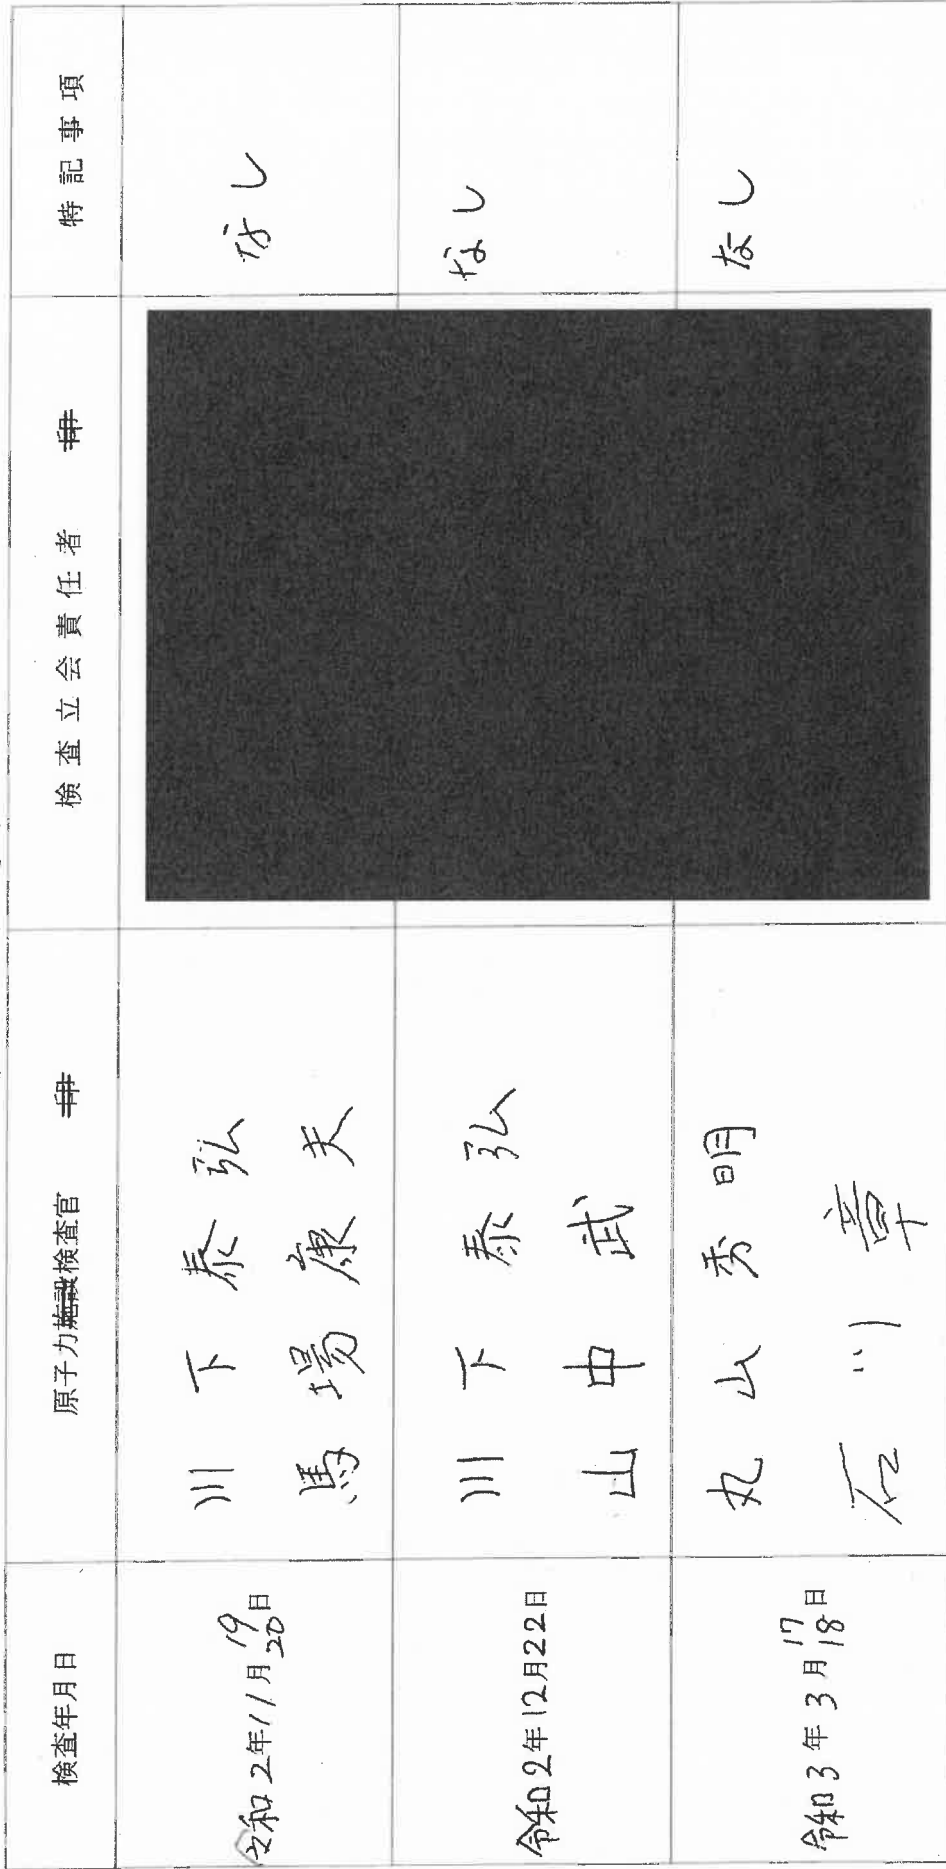 検査年月日 原子力施設検査官 印 検査立会責任者 印 特記事項
令和2年11月19日 20日 川下泰弘 なし
馬場康夫
令和2年12月22日 川下泰弘 なし
山中武
令和3年3月17日 18日 丸山秀明 なし
石川章